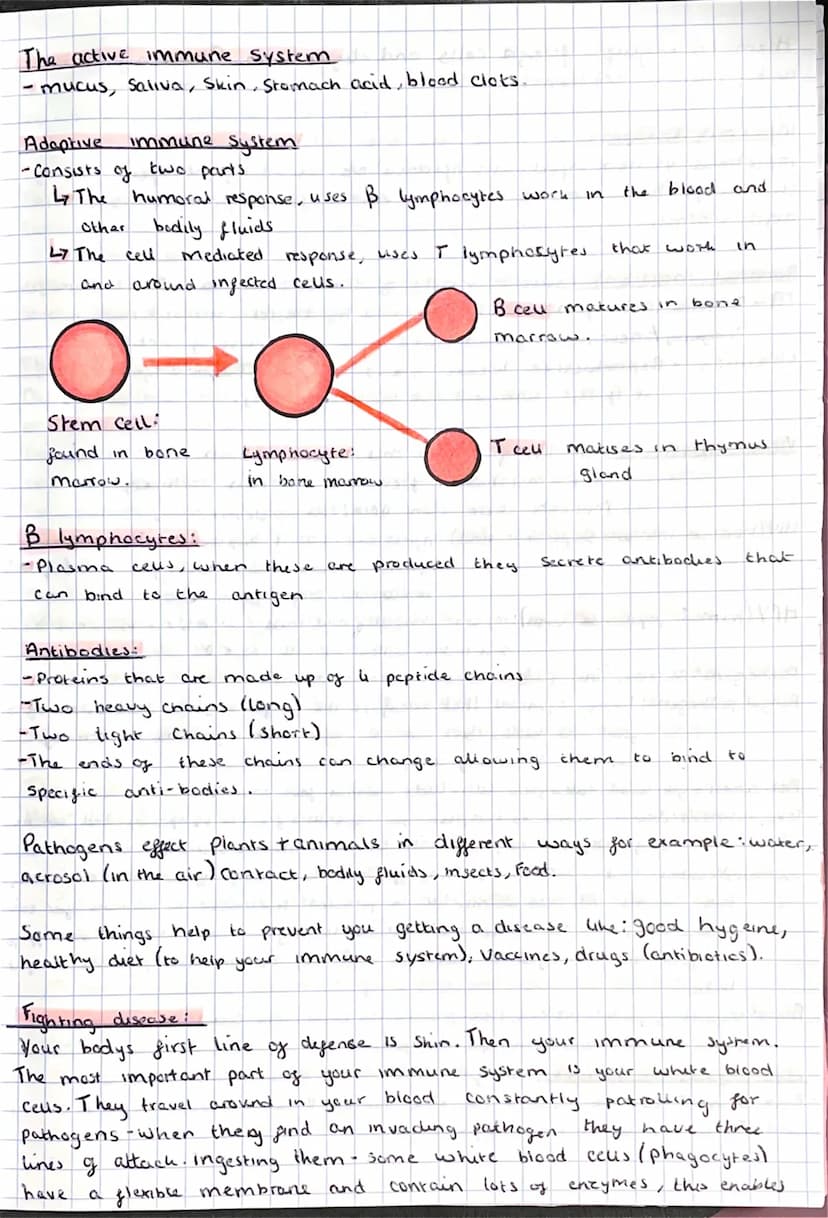 The active immune system
- mucus, saliva, skin, stomach acid, blood clots.
Adaptive immune system
- consists of two parts
↳ The humoral response, uses B lymphocytes work in the blood and
other bodily fluids
↳ The cell mediated response, uses T lymphocytes that work in
and around infected cells.
B cell matures in bone
marrow.
Stem cell:
found in bone
marrow.
Lymphocyte:
in bone marrow
T cell matises in thymus
gland
B lymphocytes:
- Plasma cells, when these are produced they secrete antibodies that
can bind to the antigen
Antibodies:
- Proteins that are made up of 4 peptide chains
- Two heavy chains (long)
- Two light chains (short)
- The ends of these chains can change allowing them to bind to
specific anti-bodies.
Pathogens effect plants + animals in different ways for example: water,
aerosol (in the air) contact, bodily fluids, insects, food.
Some things help to prevent you getting a disease like: good hygeine,
healthy diet (to help your immune system), vaccines, drugs (antibiotics).
Fighting disease:
Your bodys first line of defense is skin. Then your immune system.
The most important part of your immune system is your white blood
cells. They travel around in your blood constantly patrolling for
pathogens - when they find an invading pathogen they have three
lines of attack. Ingesting them - some white blood cells (phagocytes)
have a flexible membrane and contain lots of enzymes, this enables